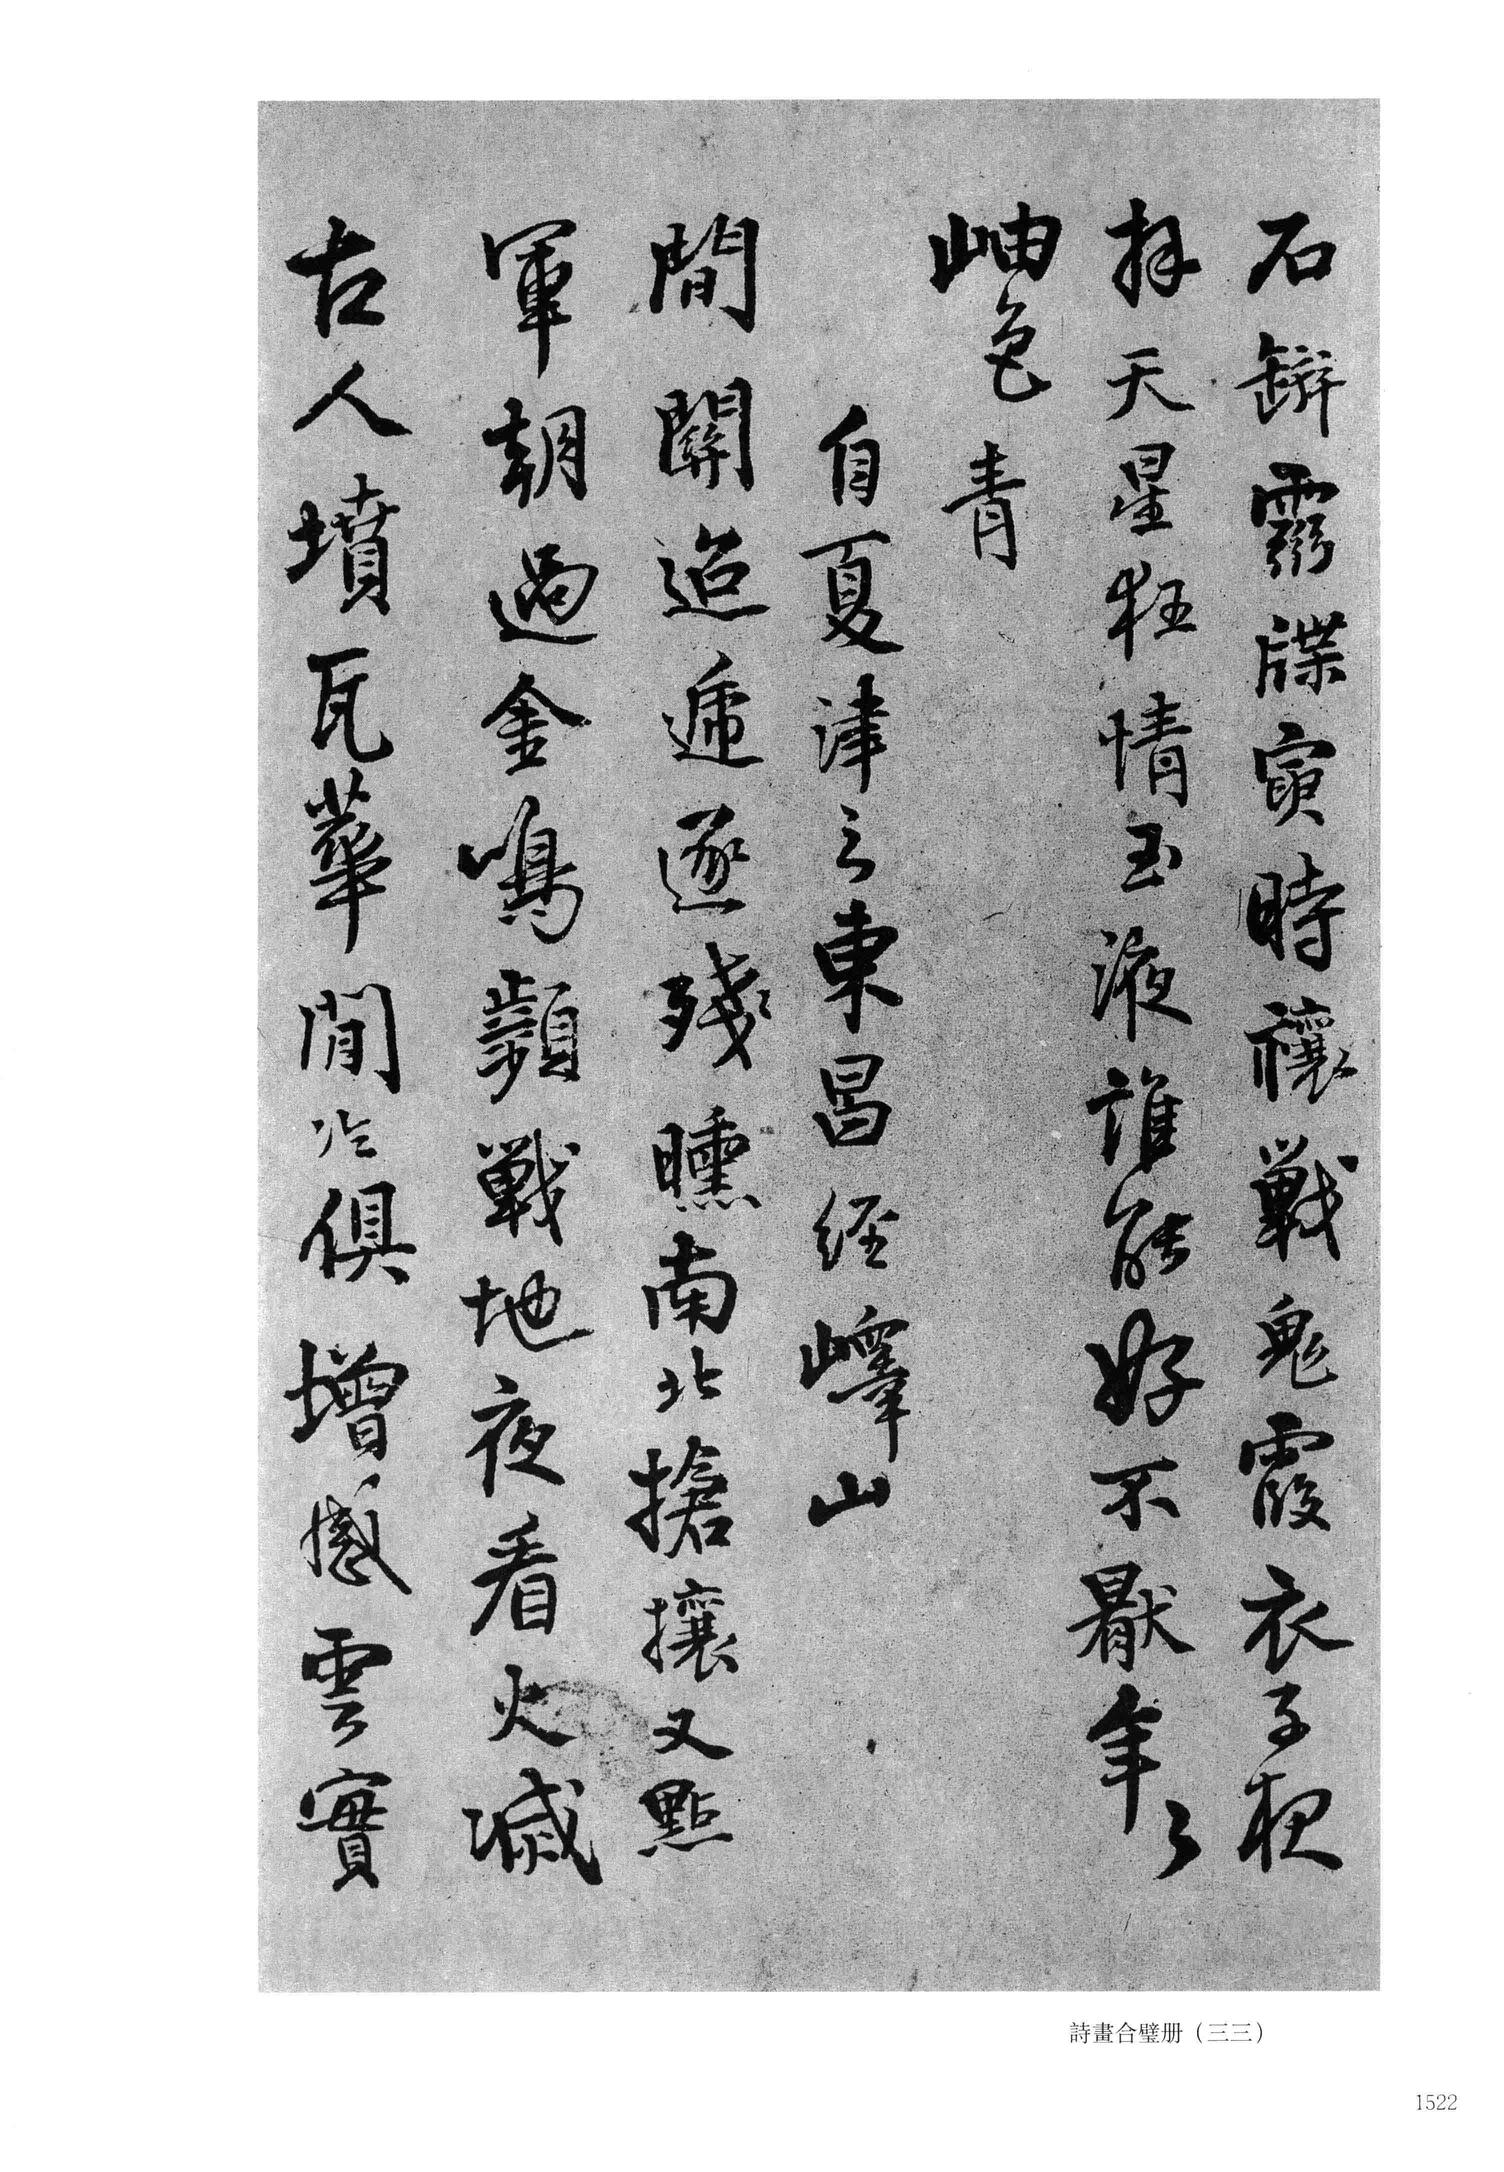 石鏬霛牒寅時禳戰鬼霞衣子夜
拜天星狂情玉液誰能好不厭年々
岫色青
自夏津之東昌經嶧山
間關迢遞逐殘曛南北搶攘又點
軍朝過金鳴顰戰地夜看火滅
古人墳瓦華閒冷俱增憾雲實
詩畫合璧册（三三）
1522